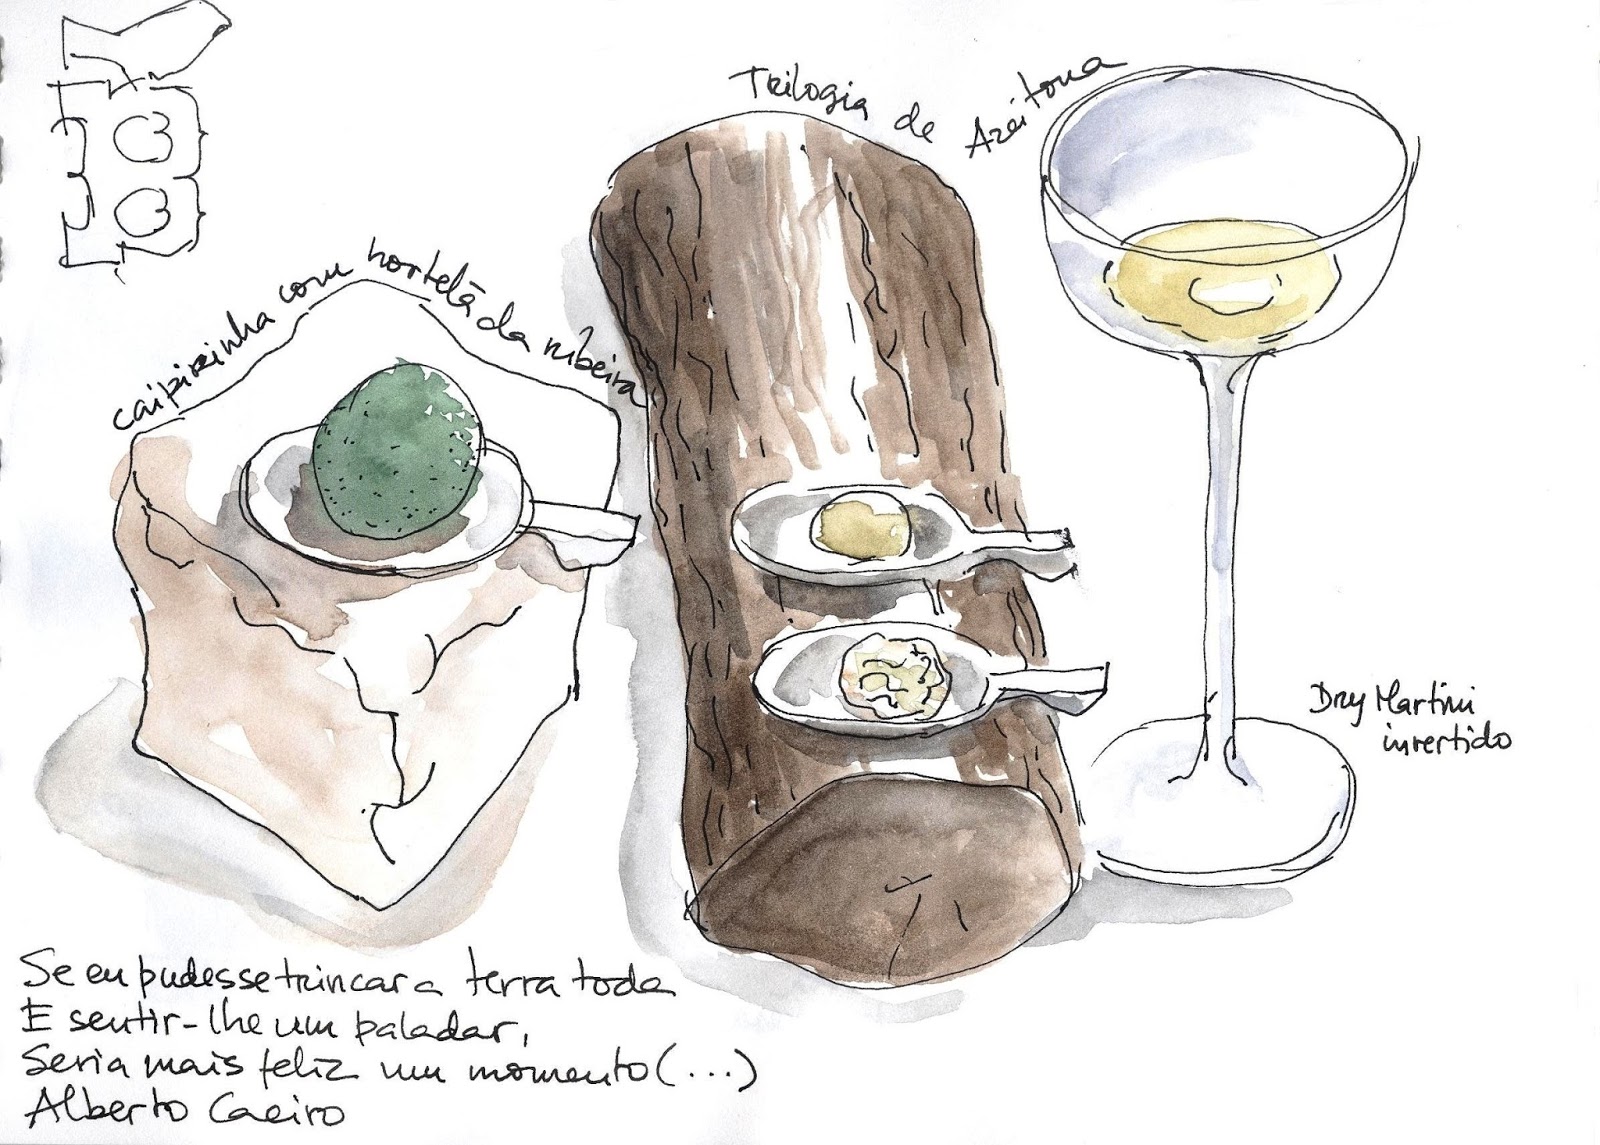 Trilogia de Azeitona
caipirinha com hortelã da ribeira
Dry Martini
invertido
Se eu pudesse trincar a terra toda
E sentir-lhe um paladar,
Seria mais feliz um momento (...)
Alberto Caeiro